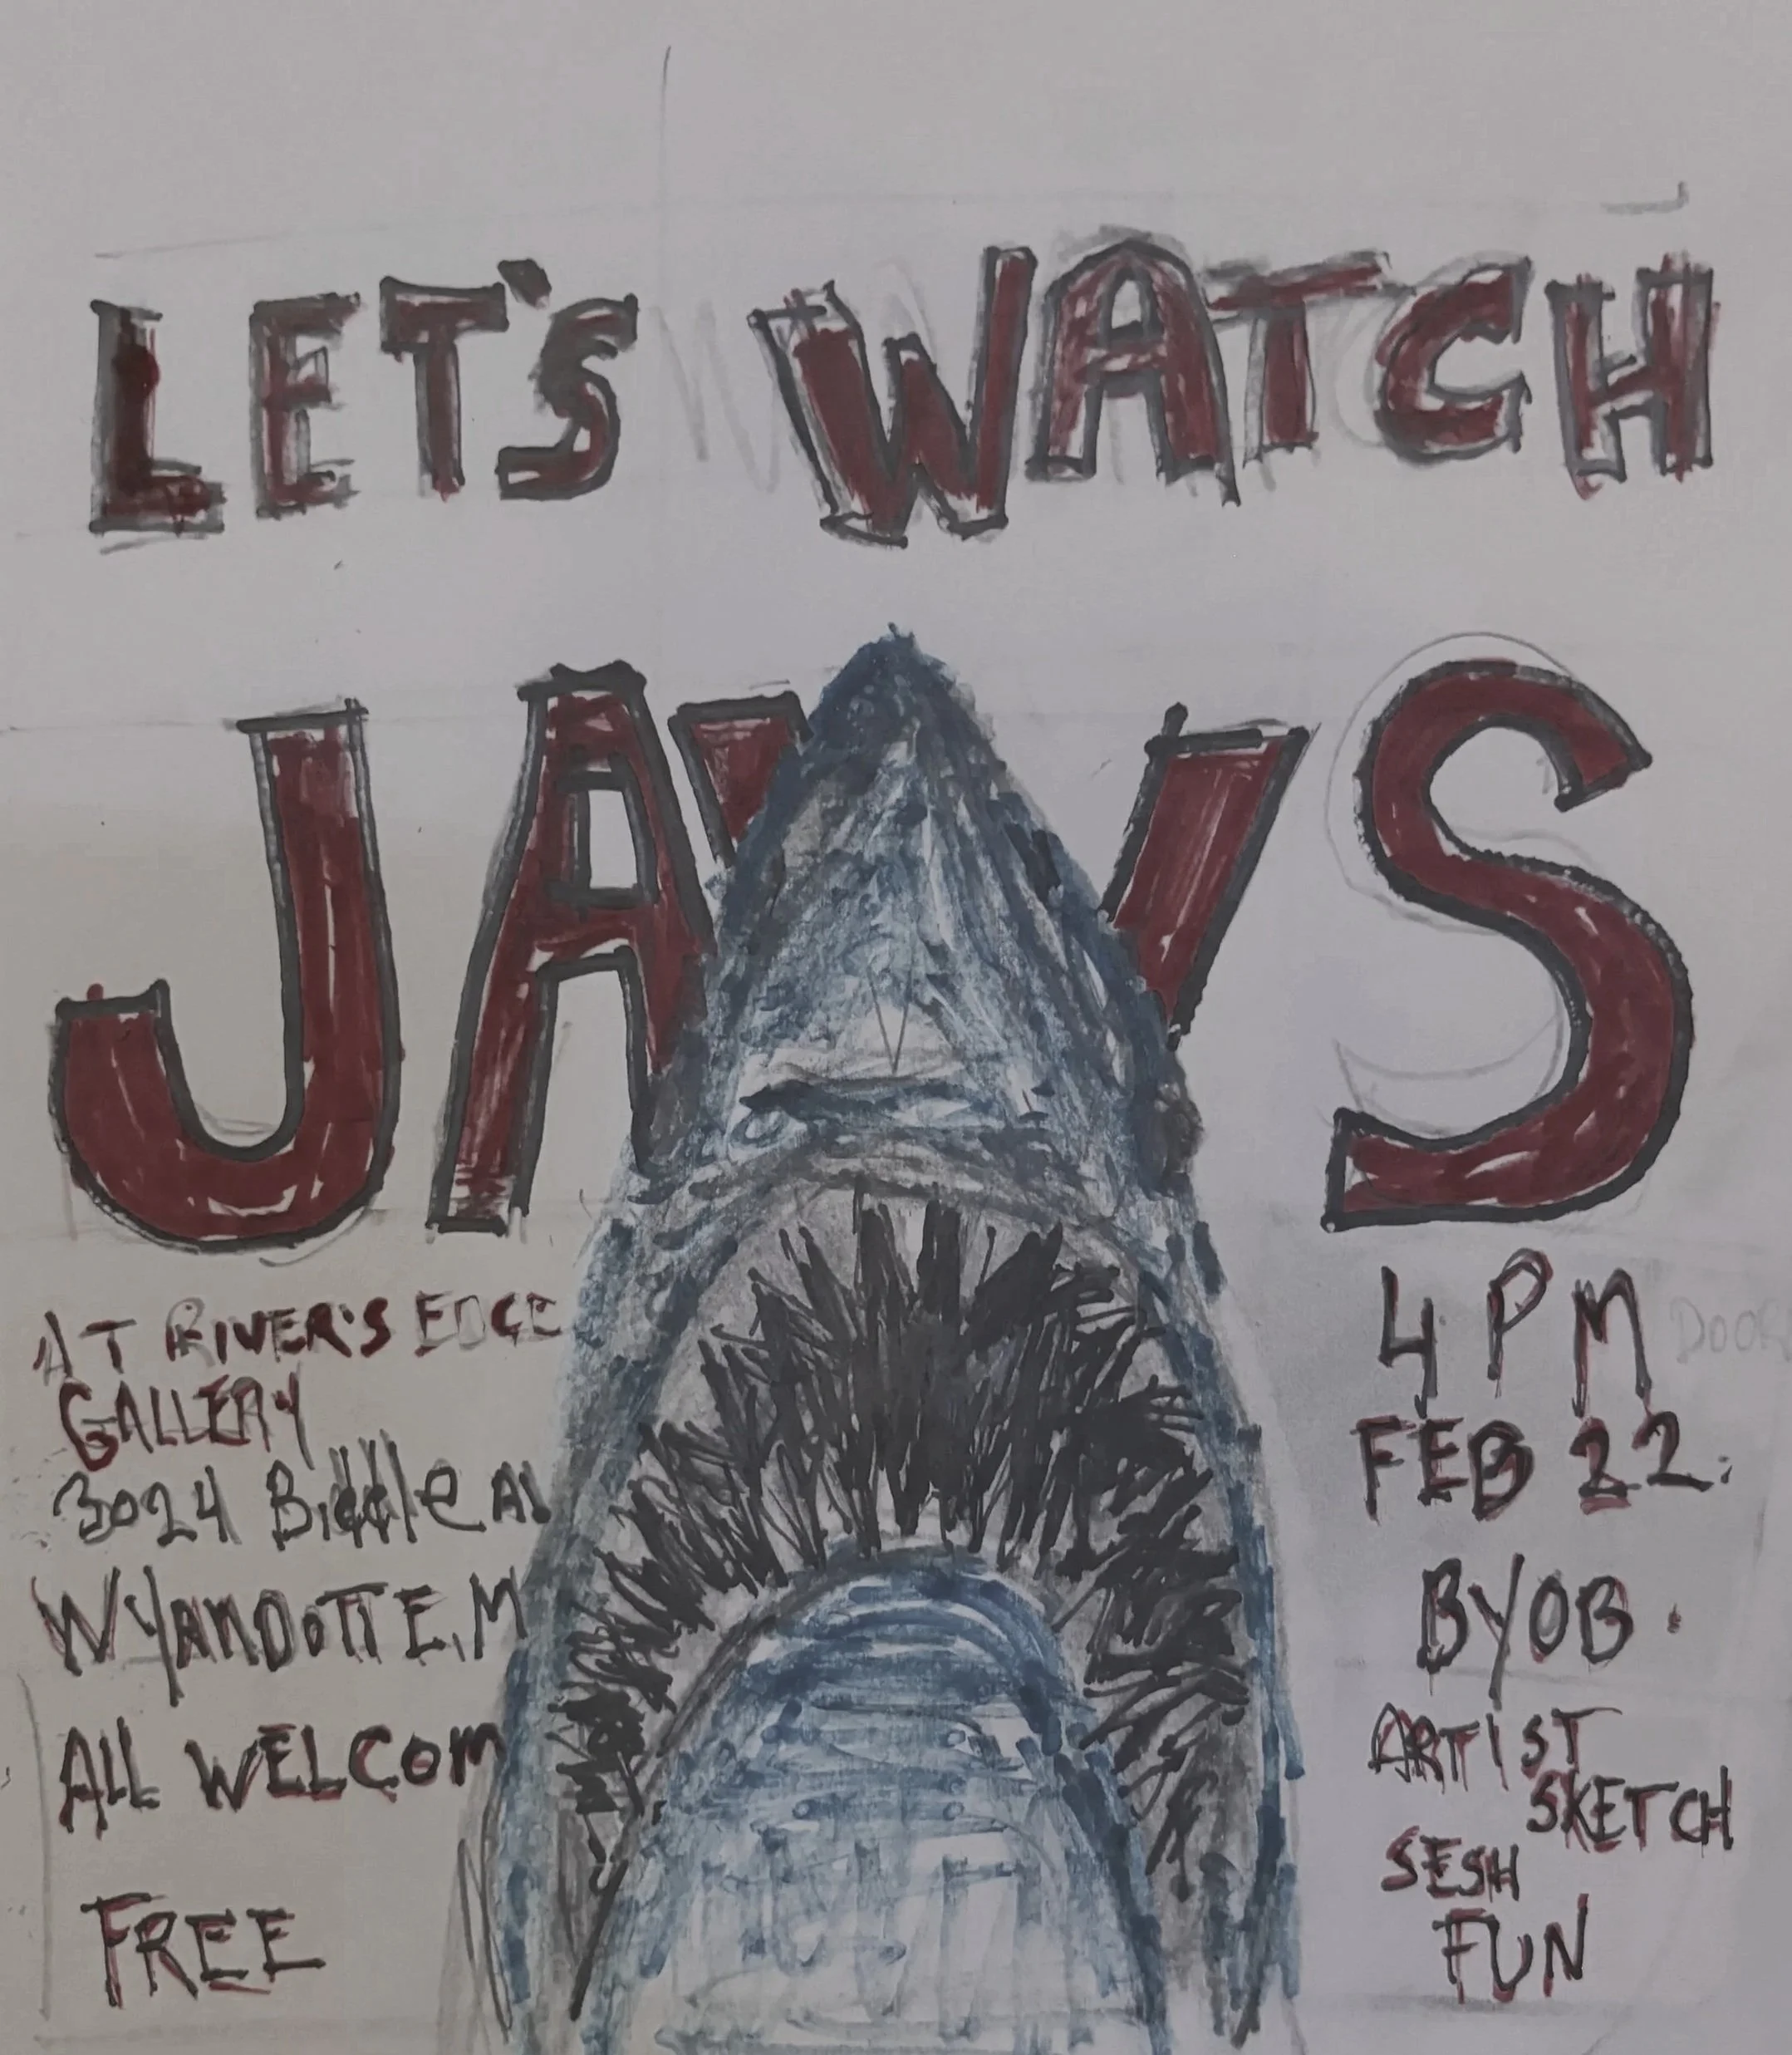 LET'S WATCH
JAWS
AT RIVER'S EDGE
GALLERY
3024 Biddle AV
WYANDOTTE, M
ALL WELCOM
FREE
4 PM DOOR
FEB 22.
BYOB.
ARTIST
SKETCH
SESH
FUN